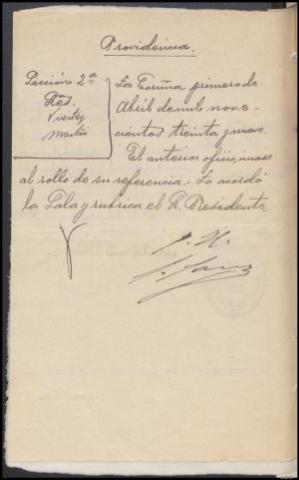 Providencia.
Sección 2ª
Vivente
Martin
La Coruña, primero de
Abril de mil nove-
cientos treinta y nueve.
El anterior oficio, únase
al rollo de su referencia.- Lo acordó
la Sala y rubrica el Sr. Presidente